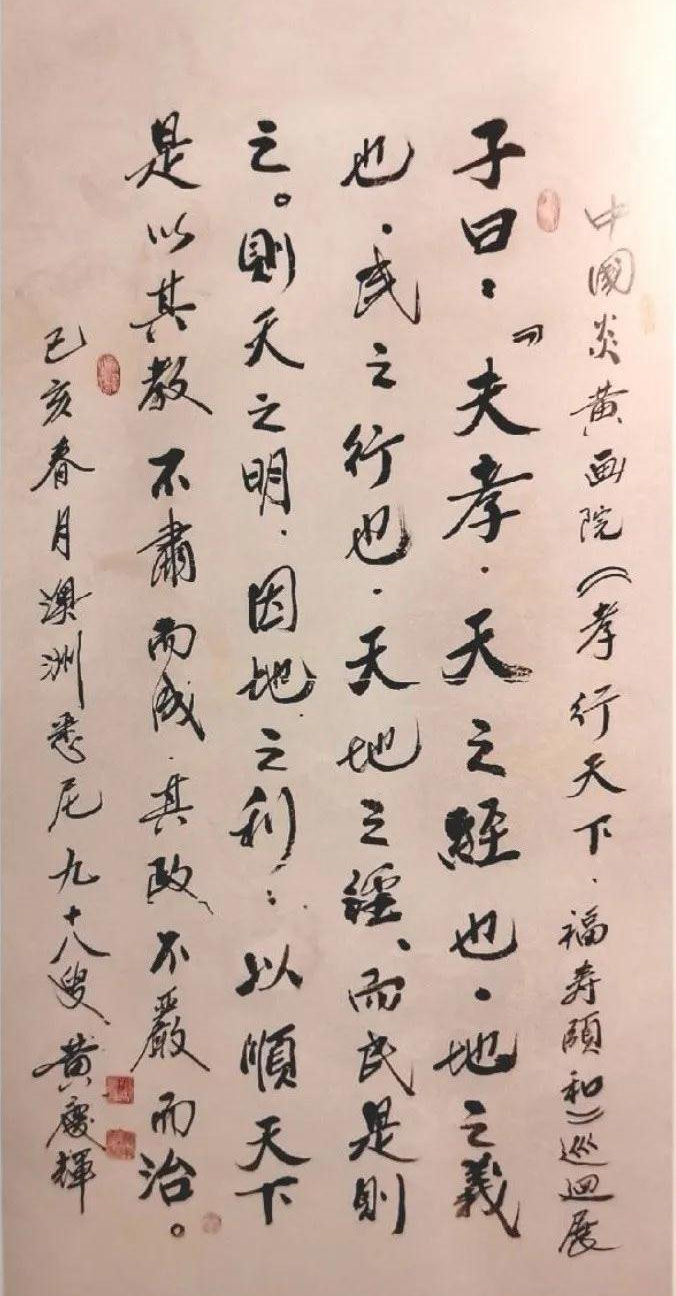 中國炎黃画院《孝行天下·福寿頤和》巡迴展
子曰：『夫孝·天之經也·地之義
也·民之行也·天地之經、而民是則
之。則天之明·因地之利：以順天下
是以其教不肅而成·其政不嚴而治。
己亥春月澳洲悉尼九十八叟黃慶輝